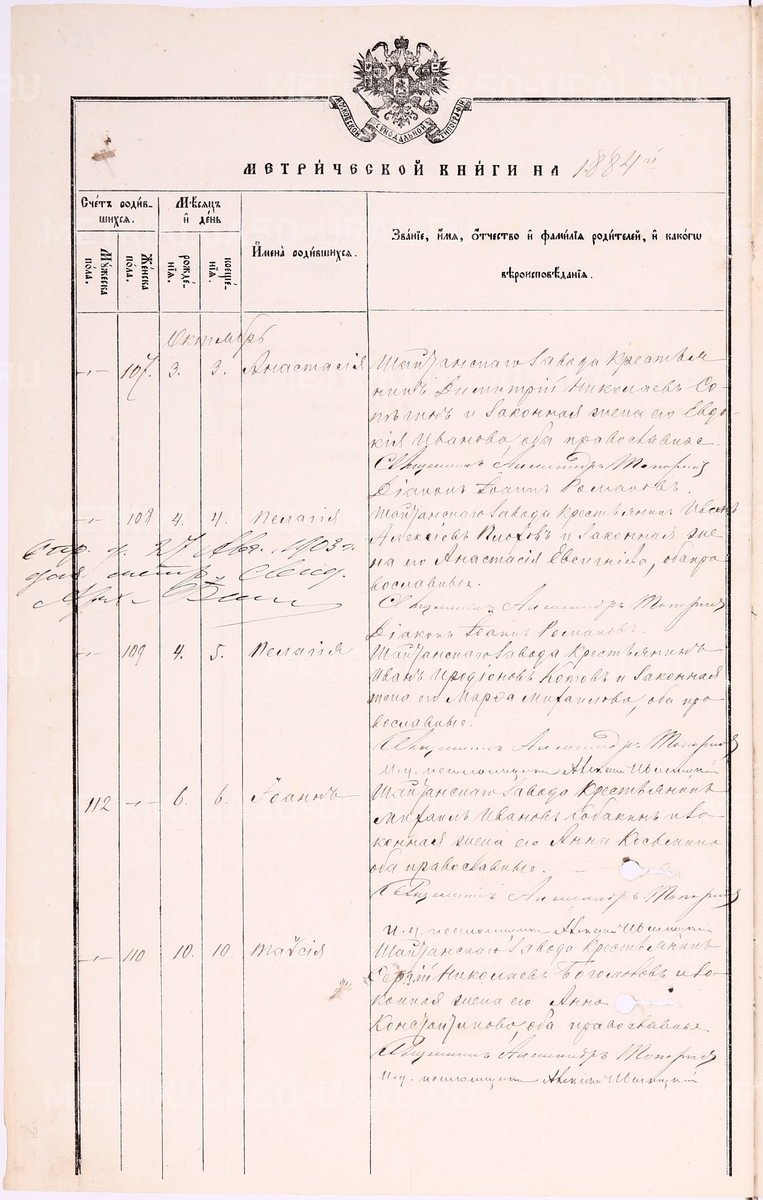 МОСКОВСКОЙ СѴНОДАЛЬНОЙ ТИПОГРАФІИ
МЕТРИ́ЧЕСКОЙ КНИ́ГИ НА 1884й
Сче́тъ роди́в-
шихся.
Мꙋ́жеска по́ла.
Же́нска по́ла.
Мѣ́сяцъ
и де́нь
рожде́-
нїѧ.
креще́-
нїѧ.
И҆мена̀ роди́вшихся.
Зва́нїе, и҆́мѧ, ѻ҆́тчество и҆ фамі́лїѧ роди́телей, и҆ како́гѡ
вѣроисповѣ́данїѧ.
Октябрь
-"- 107. 3. 3. Анастасія
Шайтанскаго завода крестья-
нинъ Димитрій Николаевъ Со-
и законная жена его Евдо-
кія Иванова, оба православные.
Священникъ Александръ Топорковъ
Діаконъ Іоаннъ Романовъ.
-"- 108 4. 4. Пелагія
Шайтанскаго завода крестьянинъ
Алексѣевъ и законная же-
на его Анастасія Евгеніева, оба пра-
вославные.
27 Авг. 1903 г.
Священникъ Александръ Топорковъ
Діаконъ Іоаннъ Романовъ.
-"- 109 4. 5. Пелагія
Шайтанскаго завода крестьянинъ
Иванъ Иродіоновъ Котовъ и законная
жена его Марѳа Михаилова, оба пра-
вославные.
Священникъ Александръ Топорковъ
И. д. псаломщика Алексій
112 -"- 6. 6. Іоаннъ
Шайтанскаго завода крестьянинъ
Михаилъ Ивановъ Собакинъ и за-
конная жена его Анна
оба православные.
Священникъ Александръ Топорковъ
И. д. псаломщика Алексій
-"- 110 10. 10. Таисія
Шайтанскаго завода крестьянинъ
Сергій Николаевъ Боголюбовъ и за-
конная жена его Анна
Константинова, оба православные
Священникъ Александръ Топорковъ
И. д. псаломщика Алексій